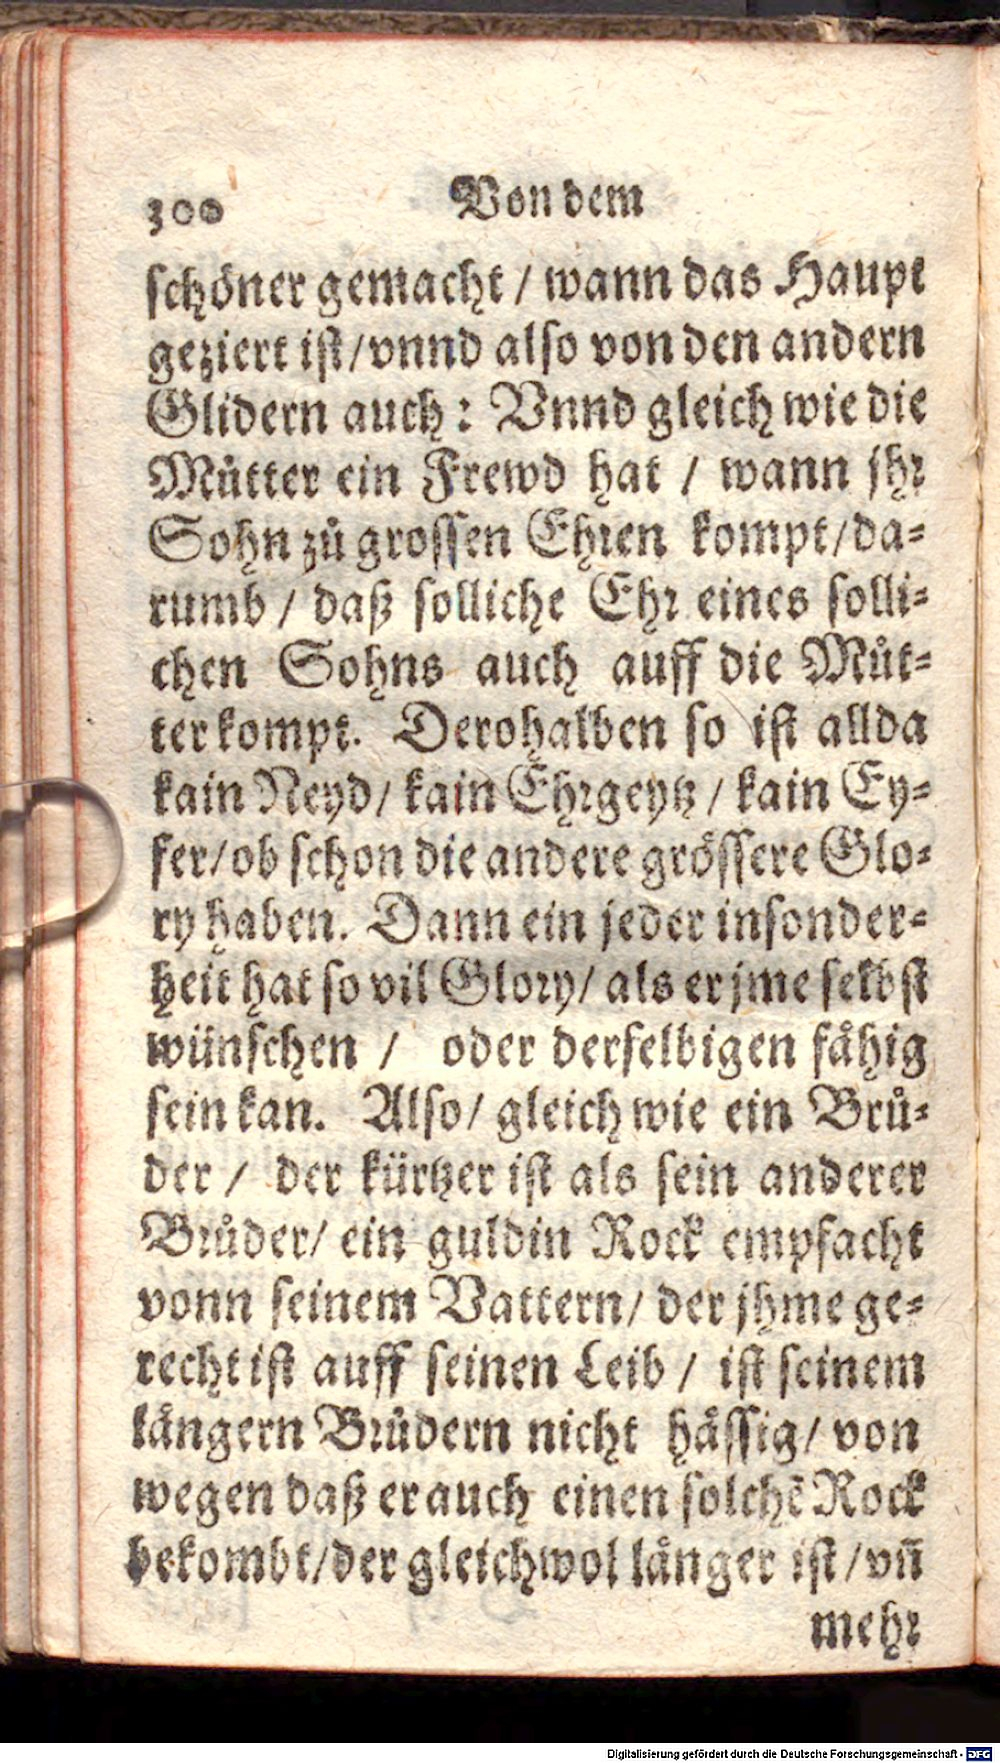 300 Von dem
schöner gemacht / wann das Haupt
geziert ist / vnnd also von den andern
Glidern auch : Vnnd gleich wie die
Můtter ein Frewd hat / wann jhr
Sohn zů grossen Ehren kompt / da-
rumb / daß solliche Ehr eines solli-
chen Sohns auch auff die Můt-
ter kompt. Derohalben so ist allda
kain Neyd / kain Ehrgeytz / kain Ey-
fer / ob schon die andere grössere Glo-
ry haben. Dann ein jeder insonder-
heit hat so vil Glory / als er jme selbst
wünschen / oder derselbigen fähig
sein kan. Also / gleich wie ein Brů-
der / der kürtzer ist als sein anderer
Brůder / ein guldin Rock empfacht
vonn seinem Vattern / der jhme ge-
recht ist auff seinen Leib / ist seinem
längern Brůdern nicht hässig / von
wegen daß er auch einen solchē Rock
bekombt / der gleichwol länger ist / vñ
mehr
Digitalisierung gefördert durch die Deutsche Forschungsgemeinschaft - DFG